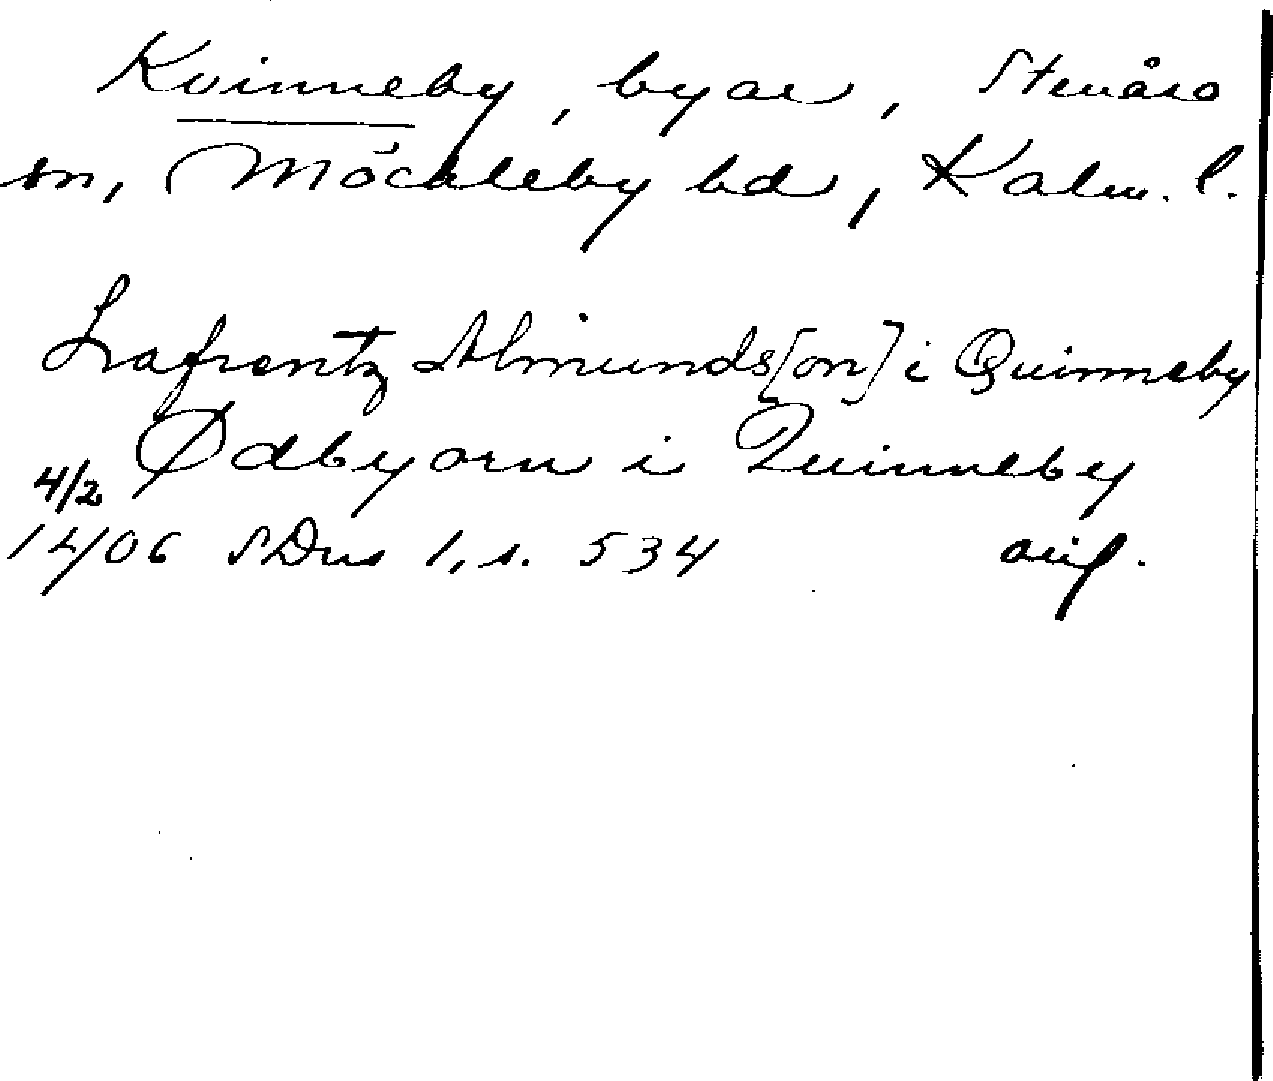 Kvinneby, byar, Stenåsa
sn, Möckleby hd, Kalm. l.
Lafrentz Almunds[on] i Quinneby
Ødbyorn i Quinneby
4/2
1406 SDns 1, s. 534 avs.